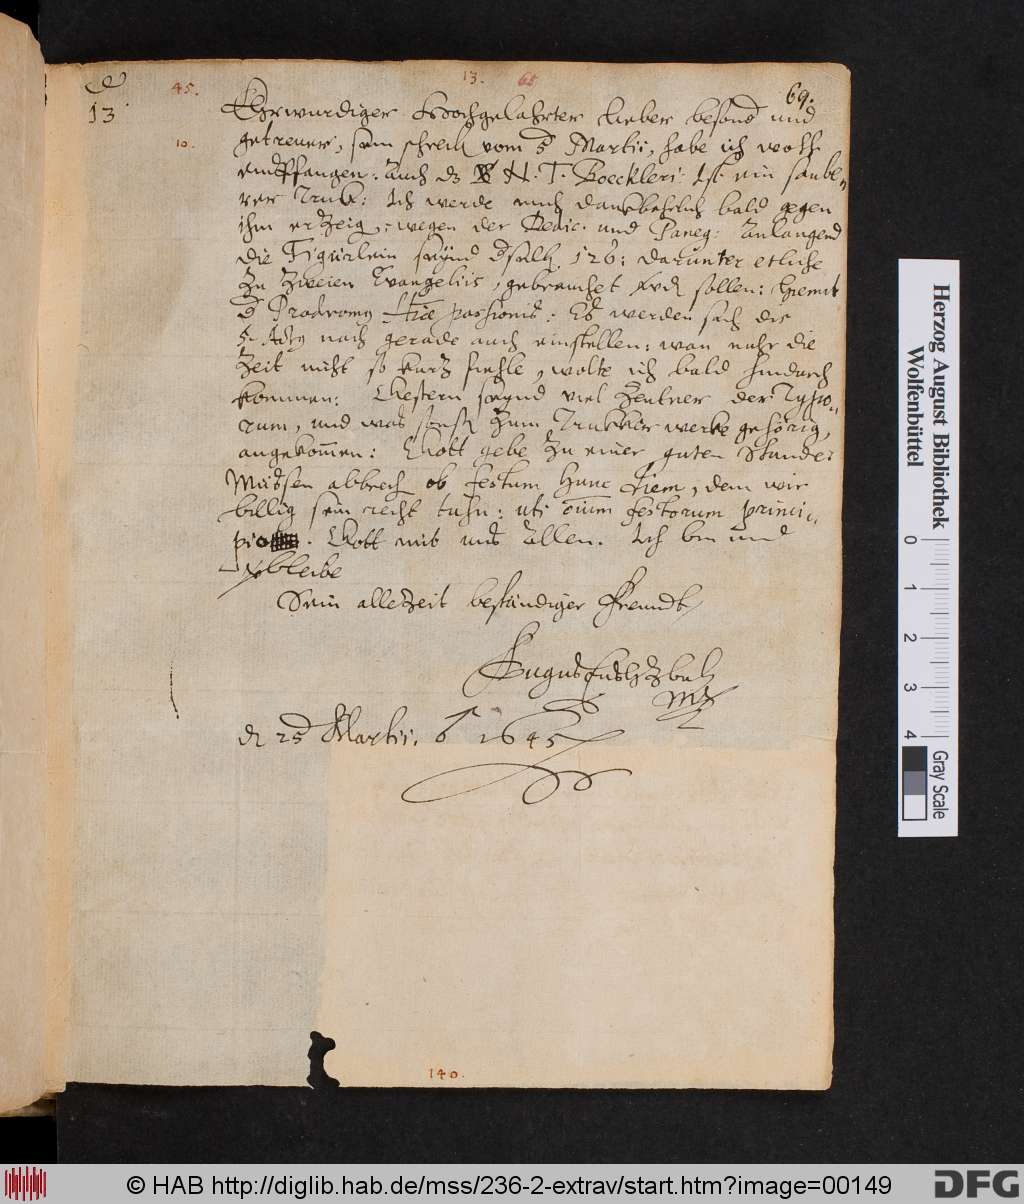 13.
45.
13.
65
69.
10.
Ehrwurdiger Hochgelahrter lieber besond und
getreuer, sein schreib vom 5 Martii, habe ich wohl
empffangen: Auch dz H. T. Boeckleri. Ist ein saube
rer Truk: Ich werde mich danckbahrlich bald gegen
ihm erzeig, wegen der Dedic. und Paneg: Anlangend
die Figurlein seynd 126: darunter etliche
zu zweien Evangeliis, gebrauchet sollen: hiemit
Prodromg passionis: Es werden sich die
nach gerade auch einstellen: wan mihr die
Zeit nicht so kurtz fiehle, wolte ich bald hindurch
kommen: Gestern seynd viel Zentner der Typo-
rum, und was sonst zum Trukkerwerke gehörig,
angekommen: Gott gebe zu einer guten Stunde:
Müssen abbrech ob festum hunc diem, dem wir
billig sein recht tuhn: uti oium festorum princi-
pio. Gott mit uns Allen. Ich bin und
vbleibe
Sein allezeit beständiger Freundt
Augustus HzBuL
mp
d 25 Martii. 1645
140.
Herzog August Bibliothek
Wolfenbüttel
0 1 2 3 4
Gray Scale
© HAB http://diglib.hab.de/mss/236-2-extrav/start.htm?image=00149
DFG